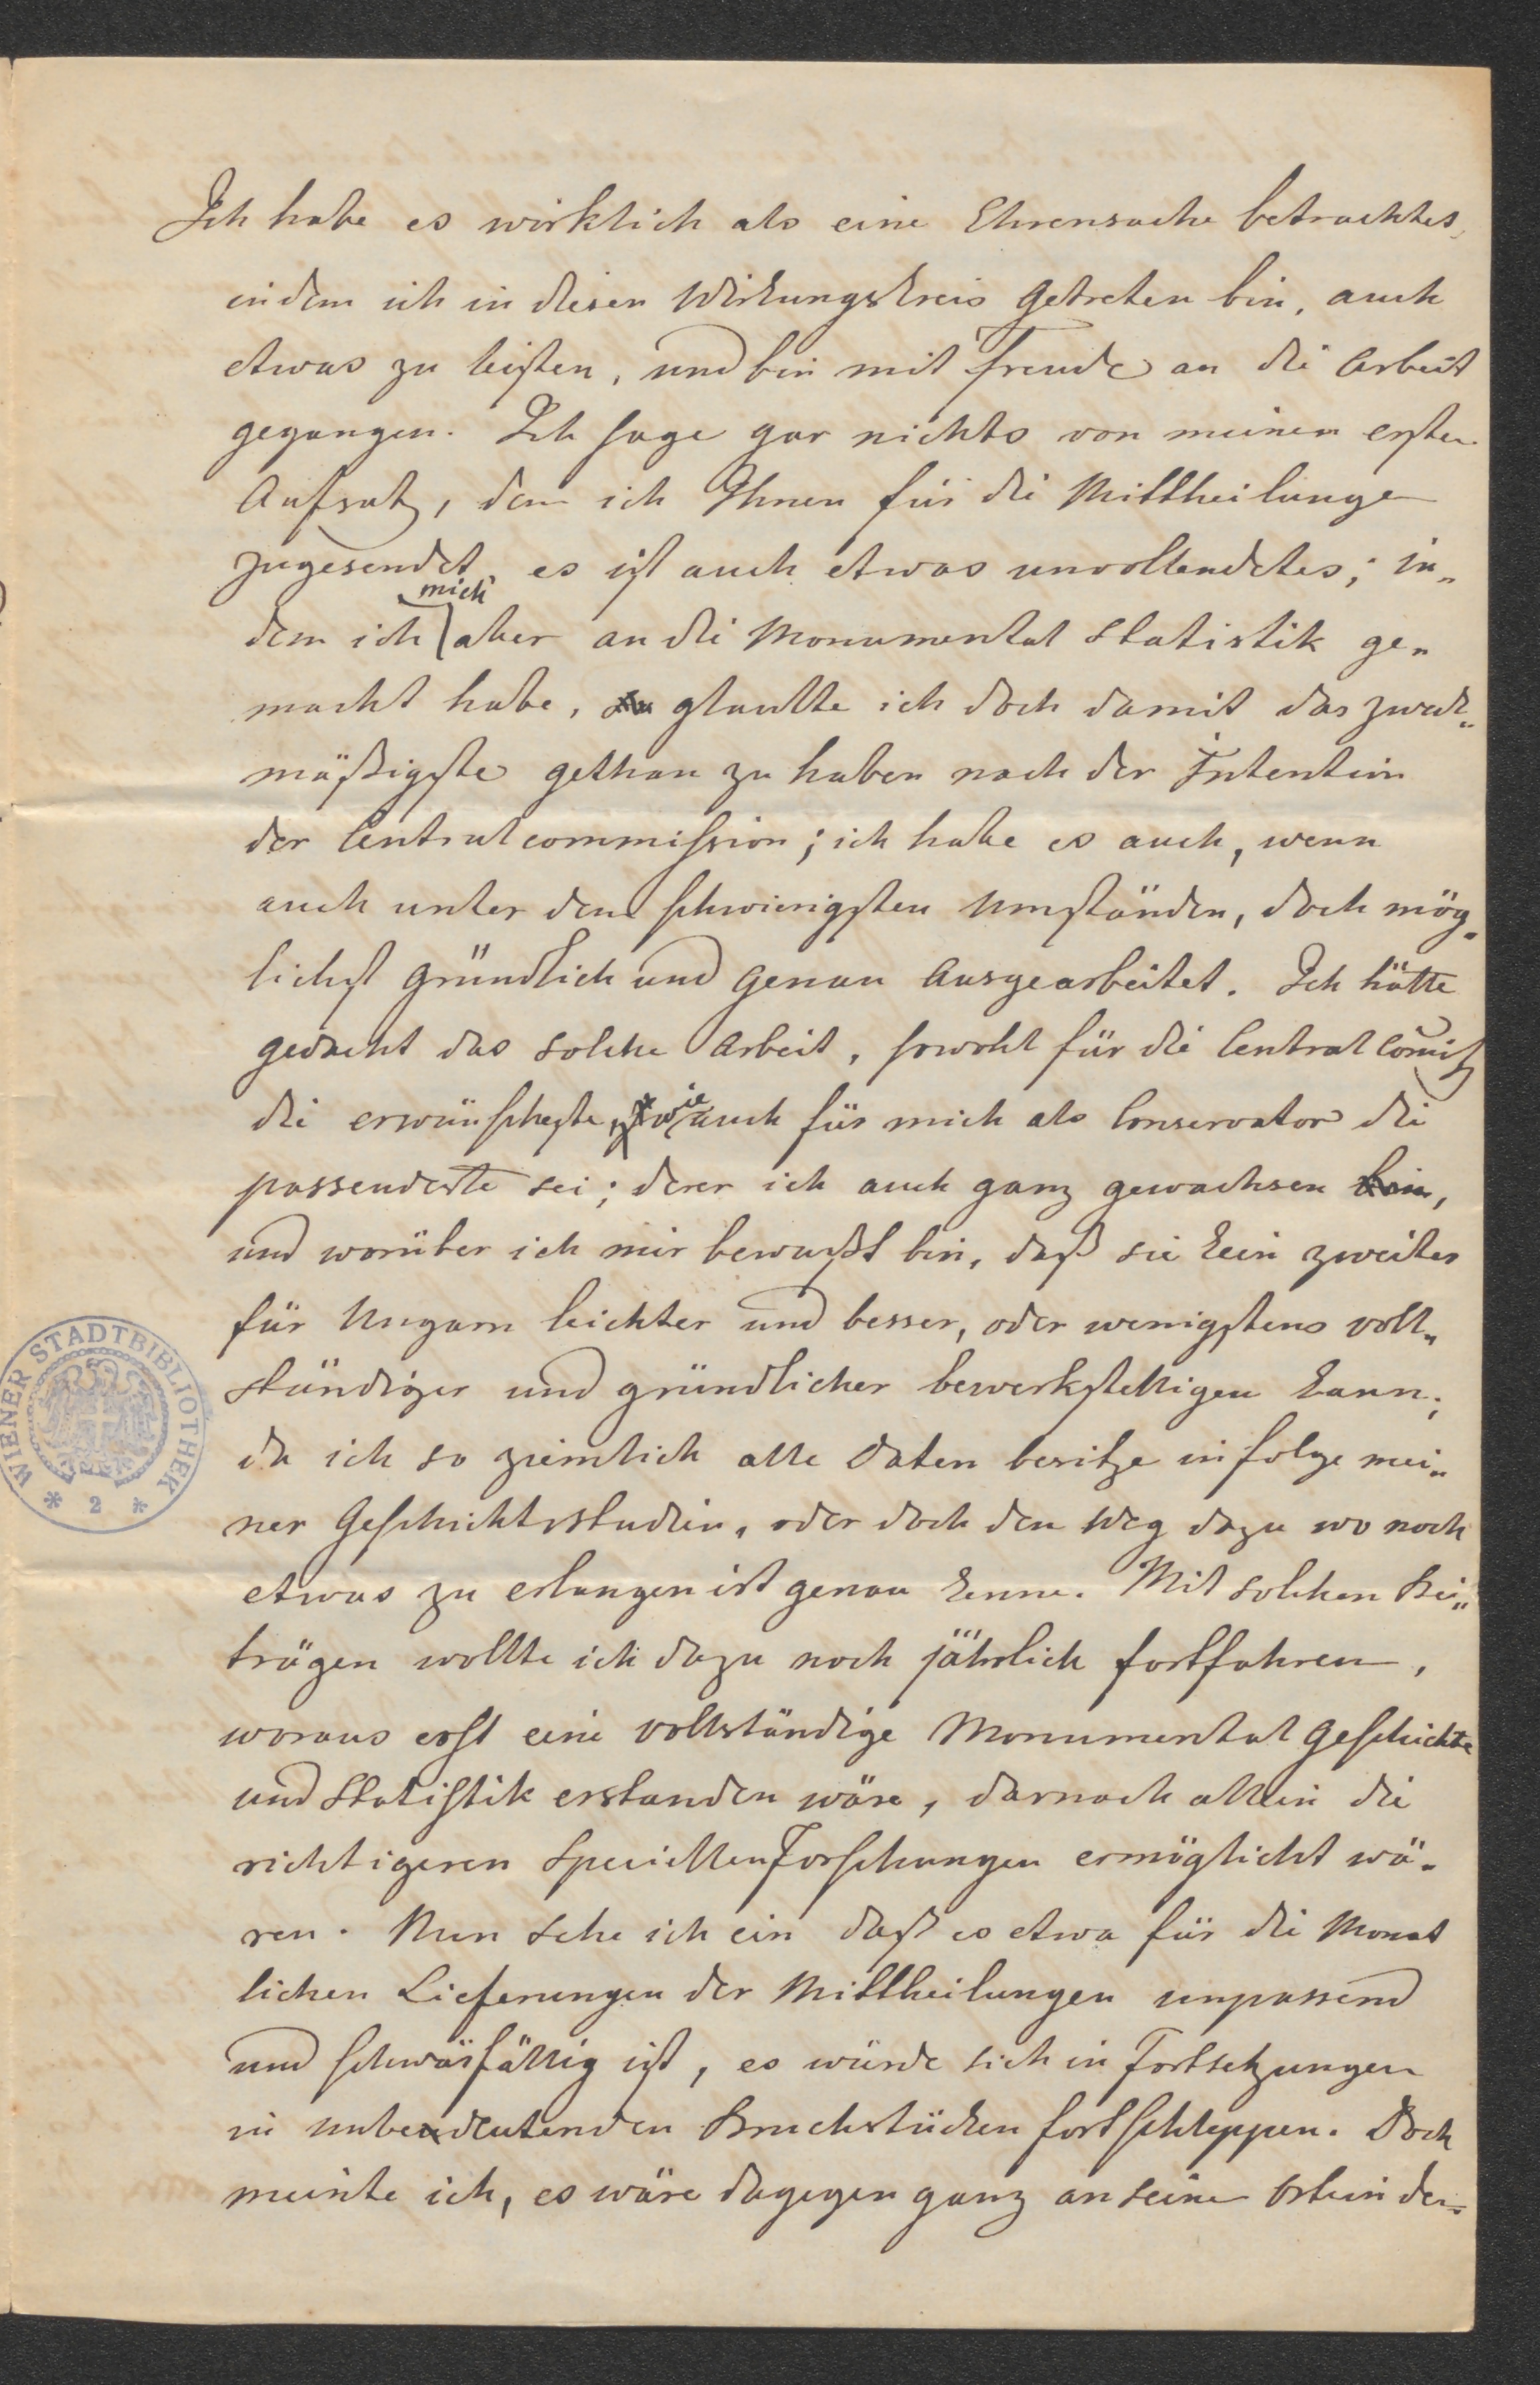 Ich habe es wirklich als eine Ehrensache betrachtet,
indem ich in diesen Wirkungskreis getreten bin, auch
etwas zu leisten, und bin mit Freude an die Arbeit
gegangen. Ich sage gar nichts von meinen ersten
Aufsatz, den ich Ihnen für die Mittheilungen
zugesendet, es ist auch etwas unvollendetes; in„
dem ich mich aber an die Monumental Statistik ge„
macht habe, glaubte ich doch damit das zweck„
mäßigste gethan zu haben nach der Intention
der Centralcommission; ich habe es auch, wenn
auch unter den schwierigsten Umständen, doch mög„
lichst gründlich und genau ausgearbeitet. Ich hätte
gedacht das solche Arbeit, sowohl für die Central Com̄iß
die erwünschteste, wie auch für mich als Conservator die
passendeste sei; derer ich auch ganz gewachsen bin,
und worüber ich mir bewußt bin, daß sie kein zweiter
für Ungarn leichter und besser, oder wenigstens voll„
ständiger und gründlicher bewerkstelligen kann;
da ich so ziemlich alle Daten besitze infolge mei„
ner Geschichtsstudien, oder doch den Weg dazu wo noch
etwas zu erlangen ist genau kenne. Mit solchen Bei„
trägen wollte ich dazu noch jährlich fortfahren,
woraus erst eine vollständige Monumental Geschichte
und Statistik erstanden wäre, darnach allein die
richtigeren speciellen Forschungen ermöglicht wä„
ren. Nun sehe ich ein daß es etwa für die Monat
lichen Lieferungen der Mittheilungen unpassend
und schwärfällig ist, es würde sich in Fortsetzungen
in unbedeutenden Bruchstücken fortschleppen. Doch
meinte ich, es wäre dagegen ganz an seinen Ort in den
WIENER STADTBIBLIOTHEK
* 2 *